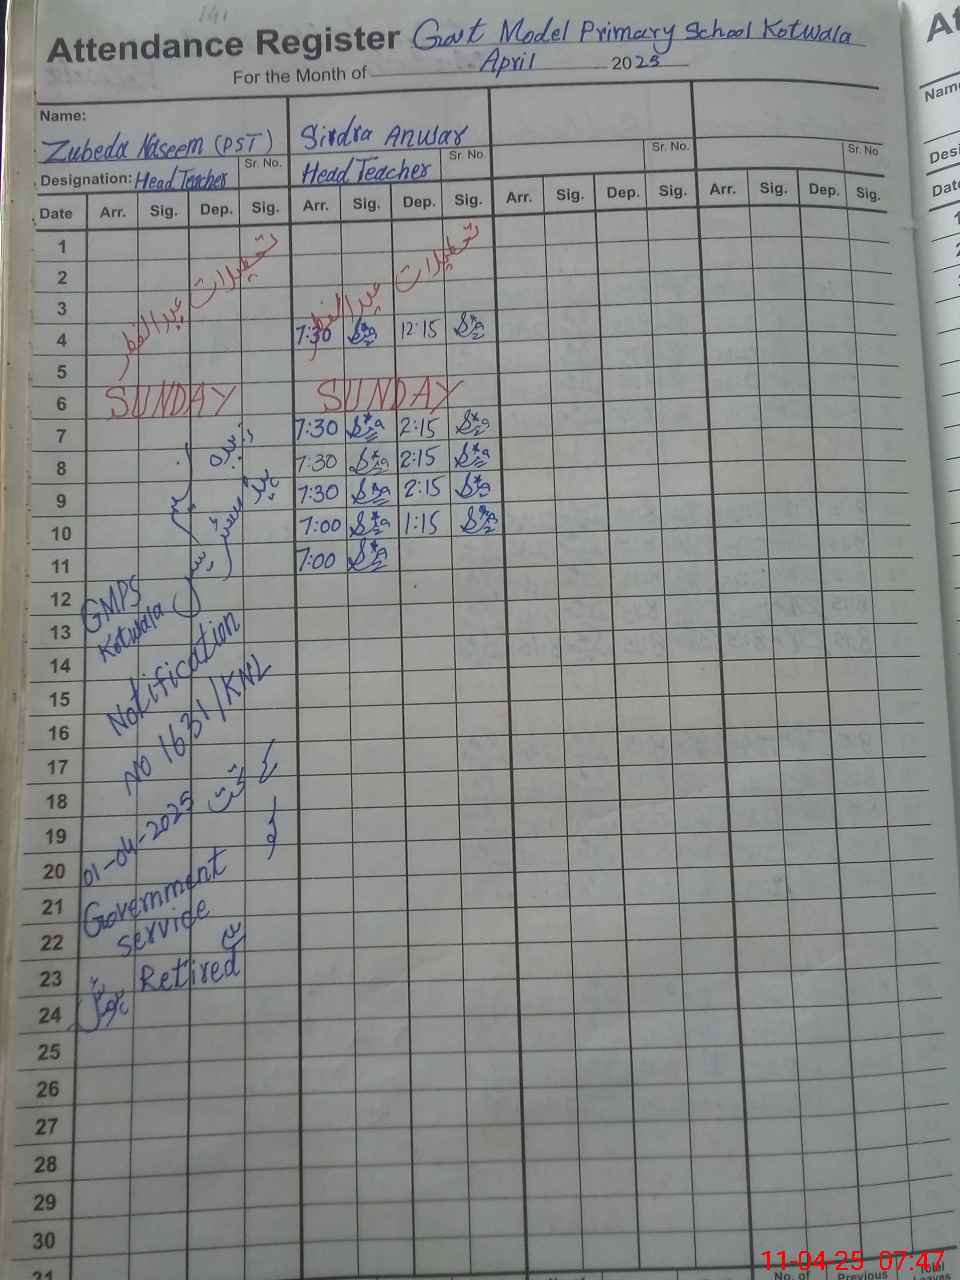 Attendance Register Govt Model Primary School Kotwala
For the Month of April 2025
Name:
Zubeda Naseem (PST) Sirdra Anwar
Sr. No. Sr. No. Sr. No. Sr. No.
Designation: Head Teacher Head Teacher
Date Arr. Sig. Dep. Sig. Arr. Sig. Dep. Sig. Arr. Sig. Dep. Sig. Arr. Sig. Dep. Sig.
1
2
3
تعطیلات عید الفطر تعطیلات عید الفطر
4 7:30 12:15
5
6 SUNDAY SUNDAY
7 7:30 2:15
8 7:30 2:15
9 7:30 2:15
10 7:00 1:15
11 7:00
زبیدہ نسیم
12 GMPS
13 Kotwala
14 Notification
15
16 No 1631/KNL
17
18
19 01-04-2025 کے تحت
20
21 Government
22 service
23 Retired
24 ہوئیں
25
26
27
28
29
30
31
11-04-25 07:47
No. of Previous Total